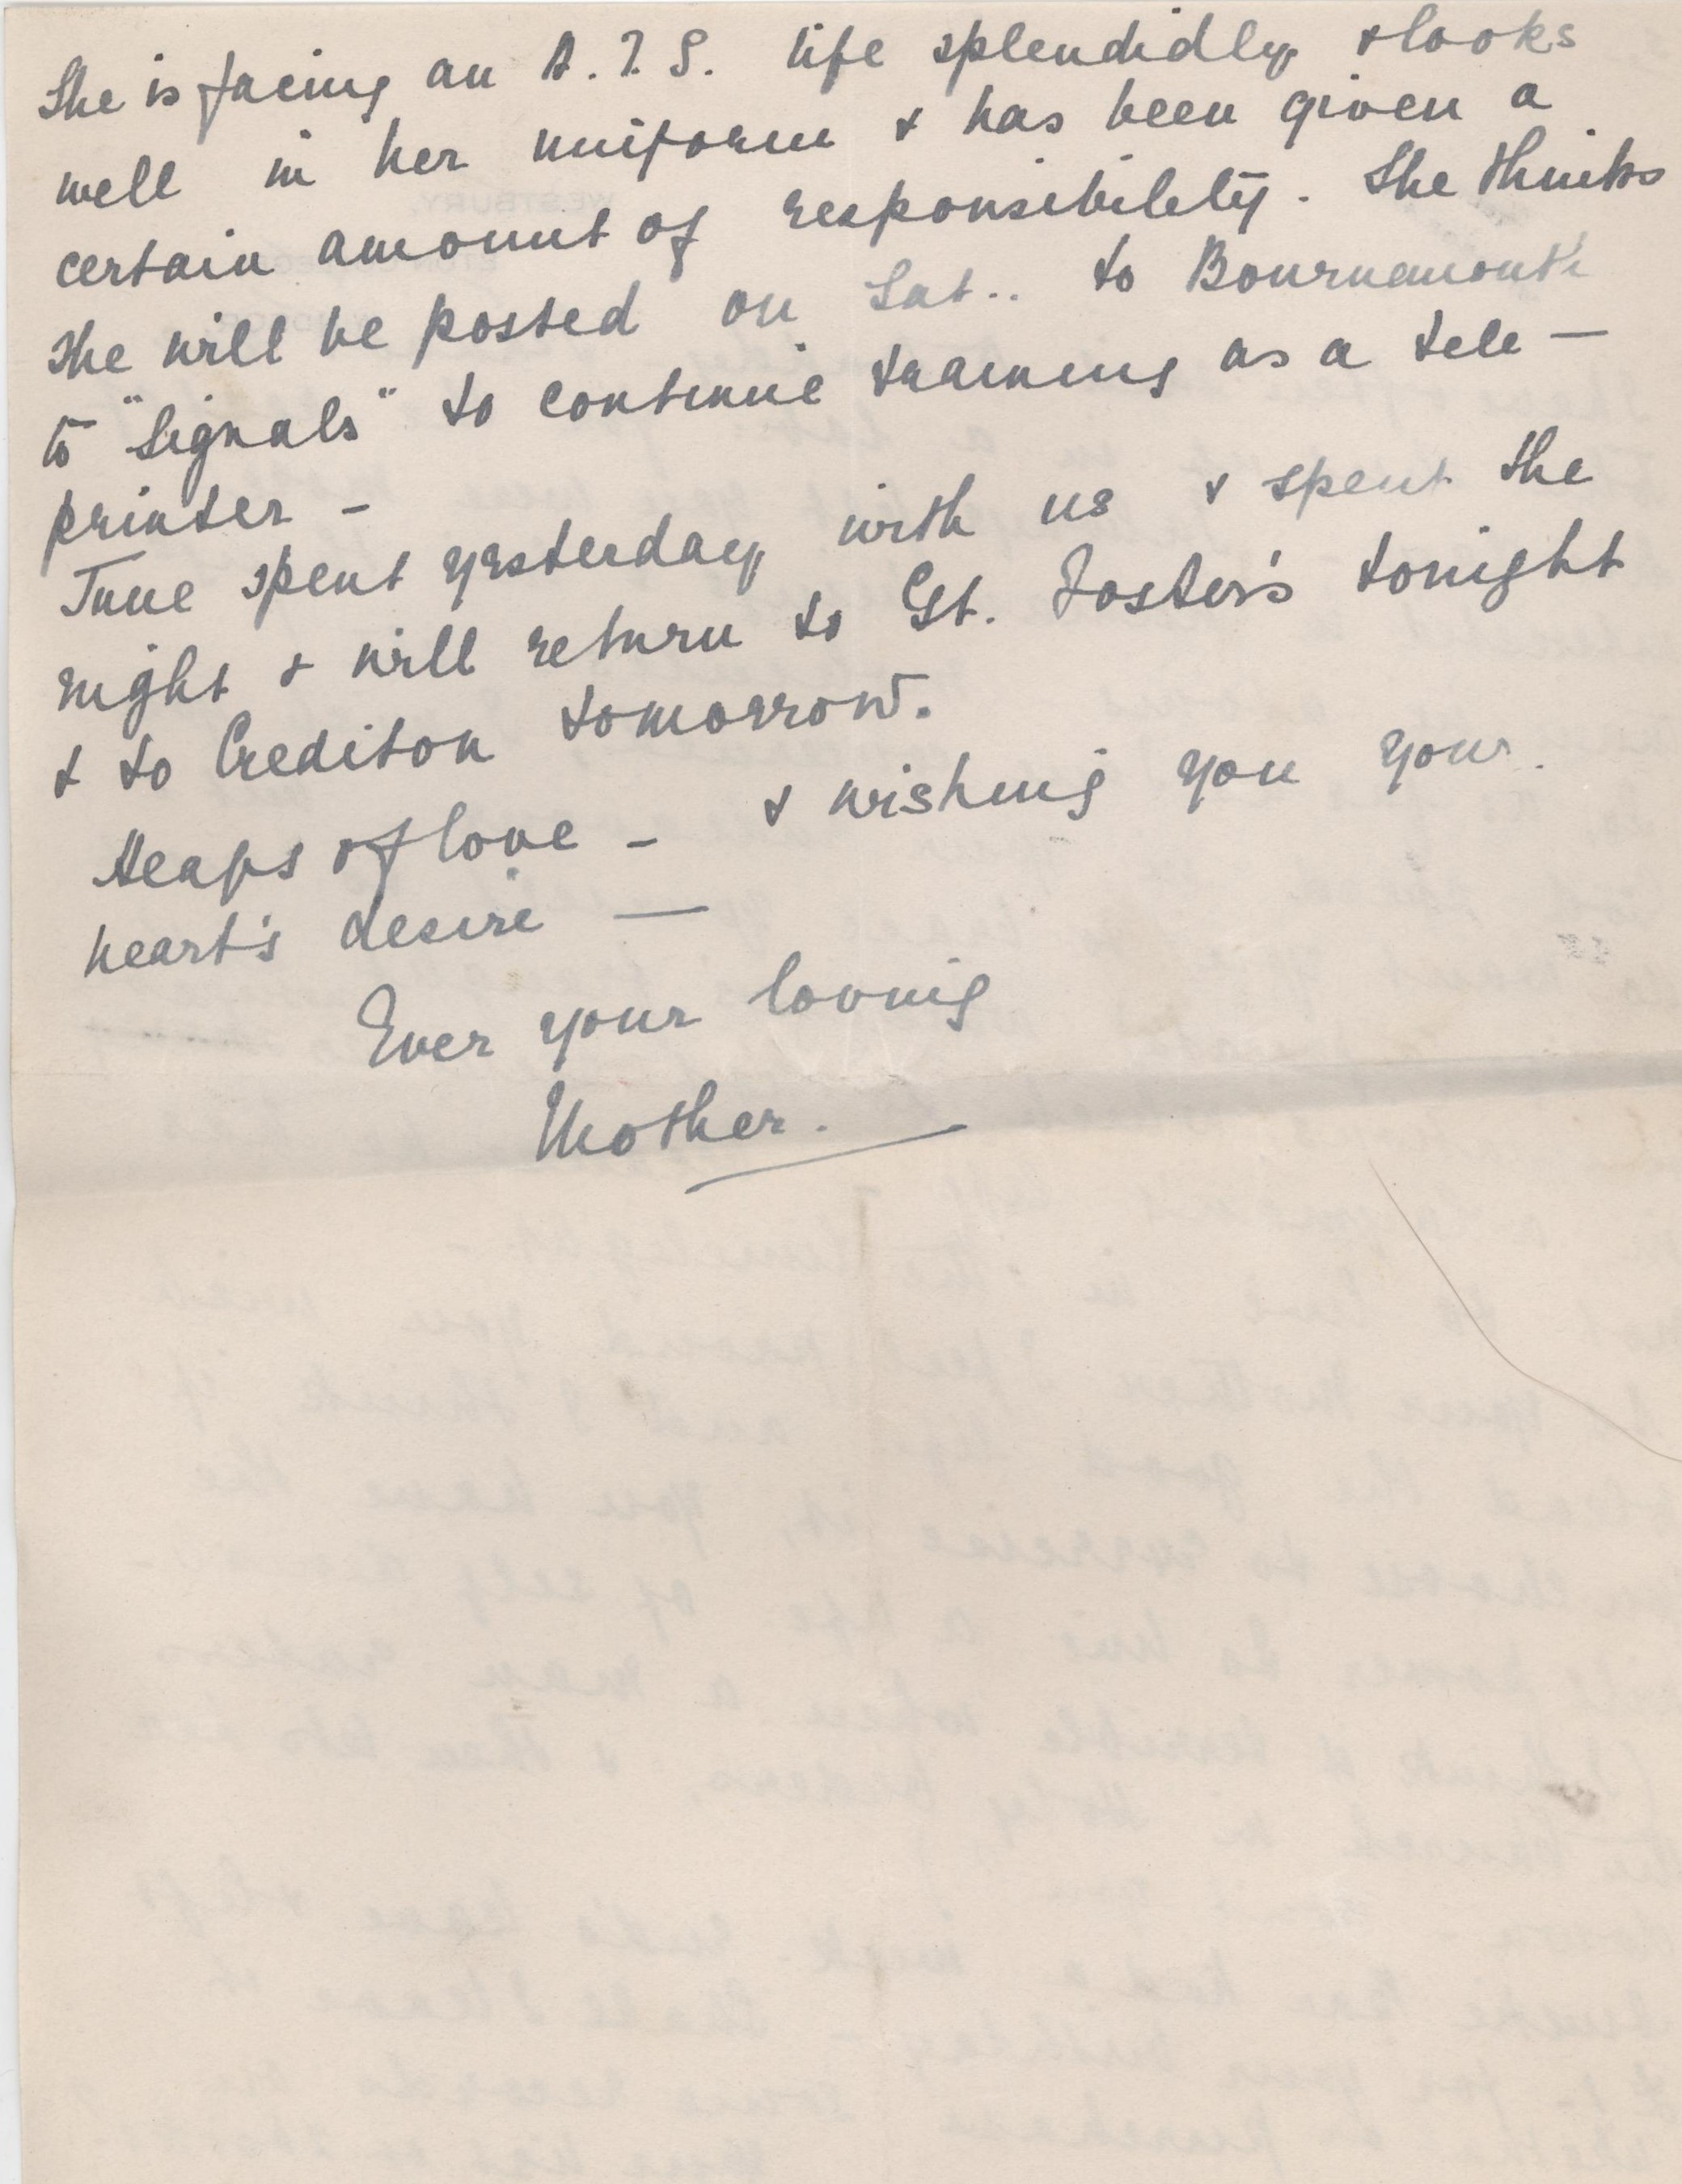 She is facing an A.T.S. life splendidly & looks
well in her uniform & has been given a
certain amount of responsibility. She thinks
she will be posted on Sat.. to Bournemouth
to "Signals" to continue training as a tele —
printer -
June spent yesterday with us & spent the
night & will return to Gt. Foster's tonight
& to Crediton tomorrow.
Heaps of love - & wishing you your
heart's desire —
Ever your loving
Mother.